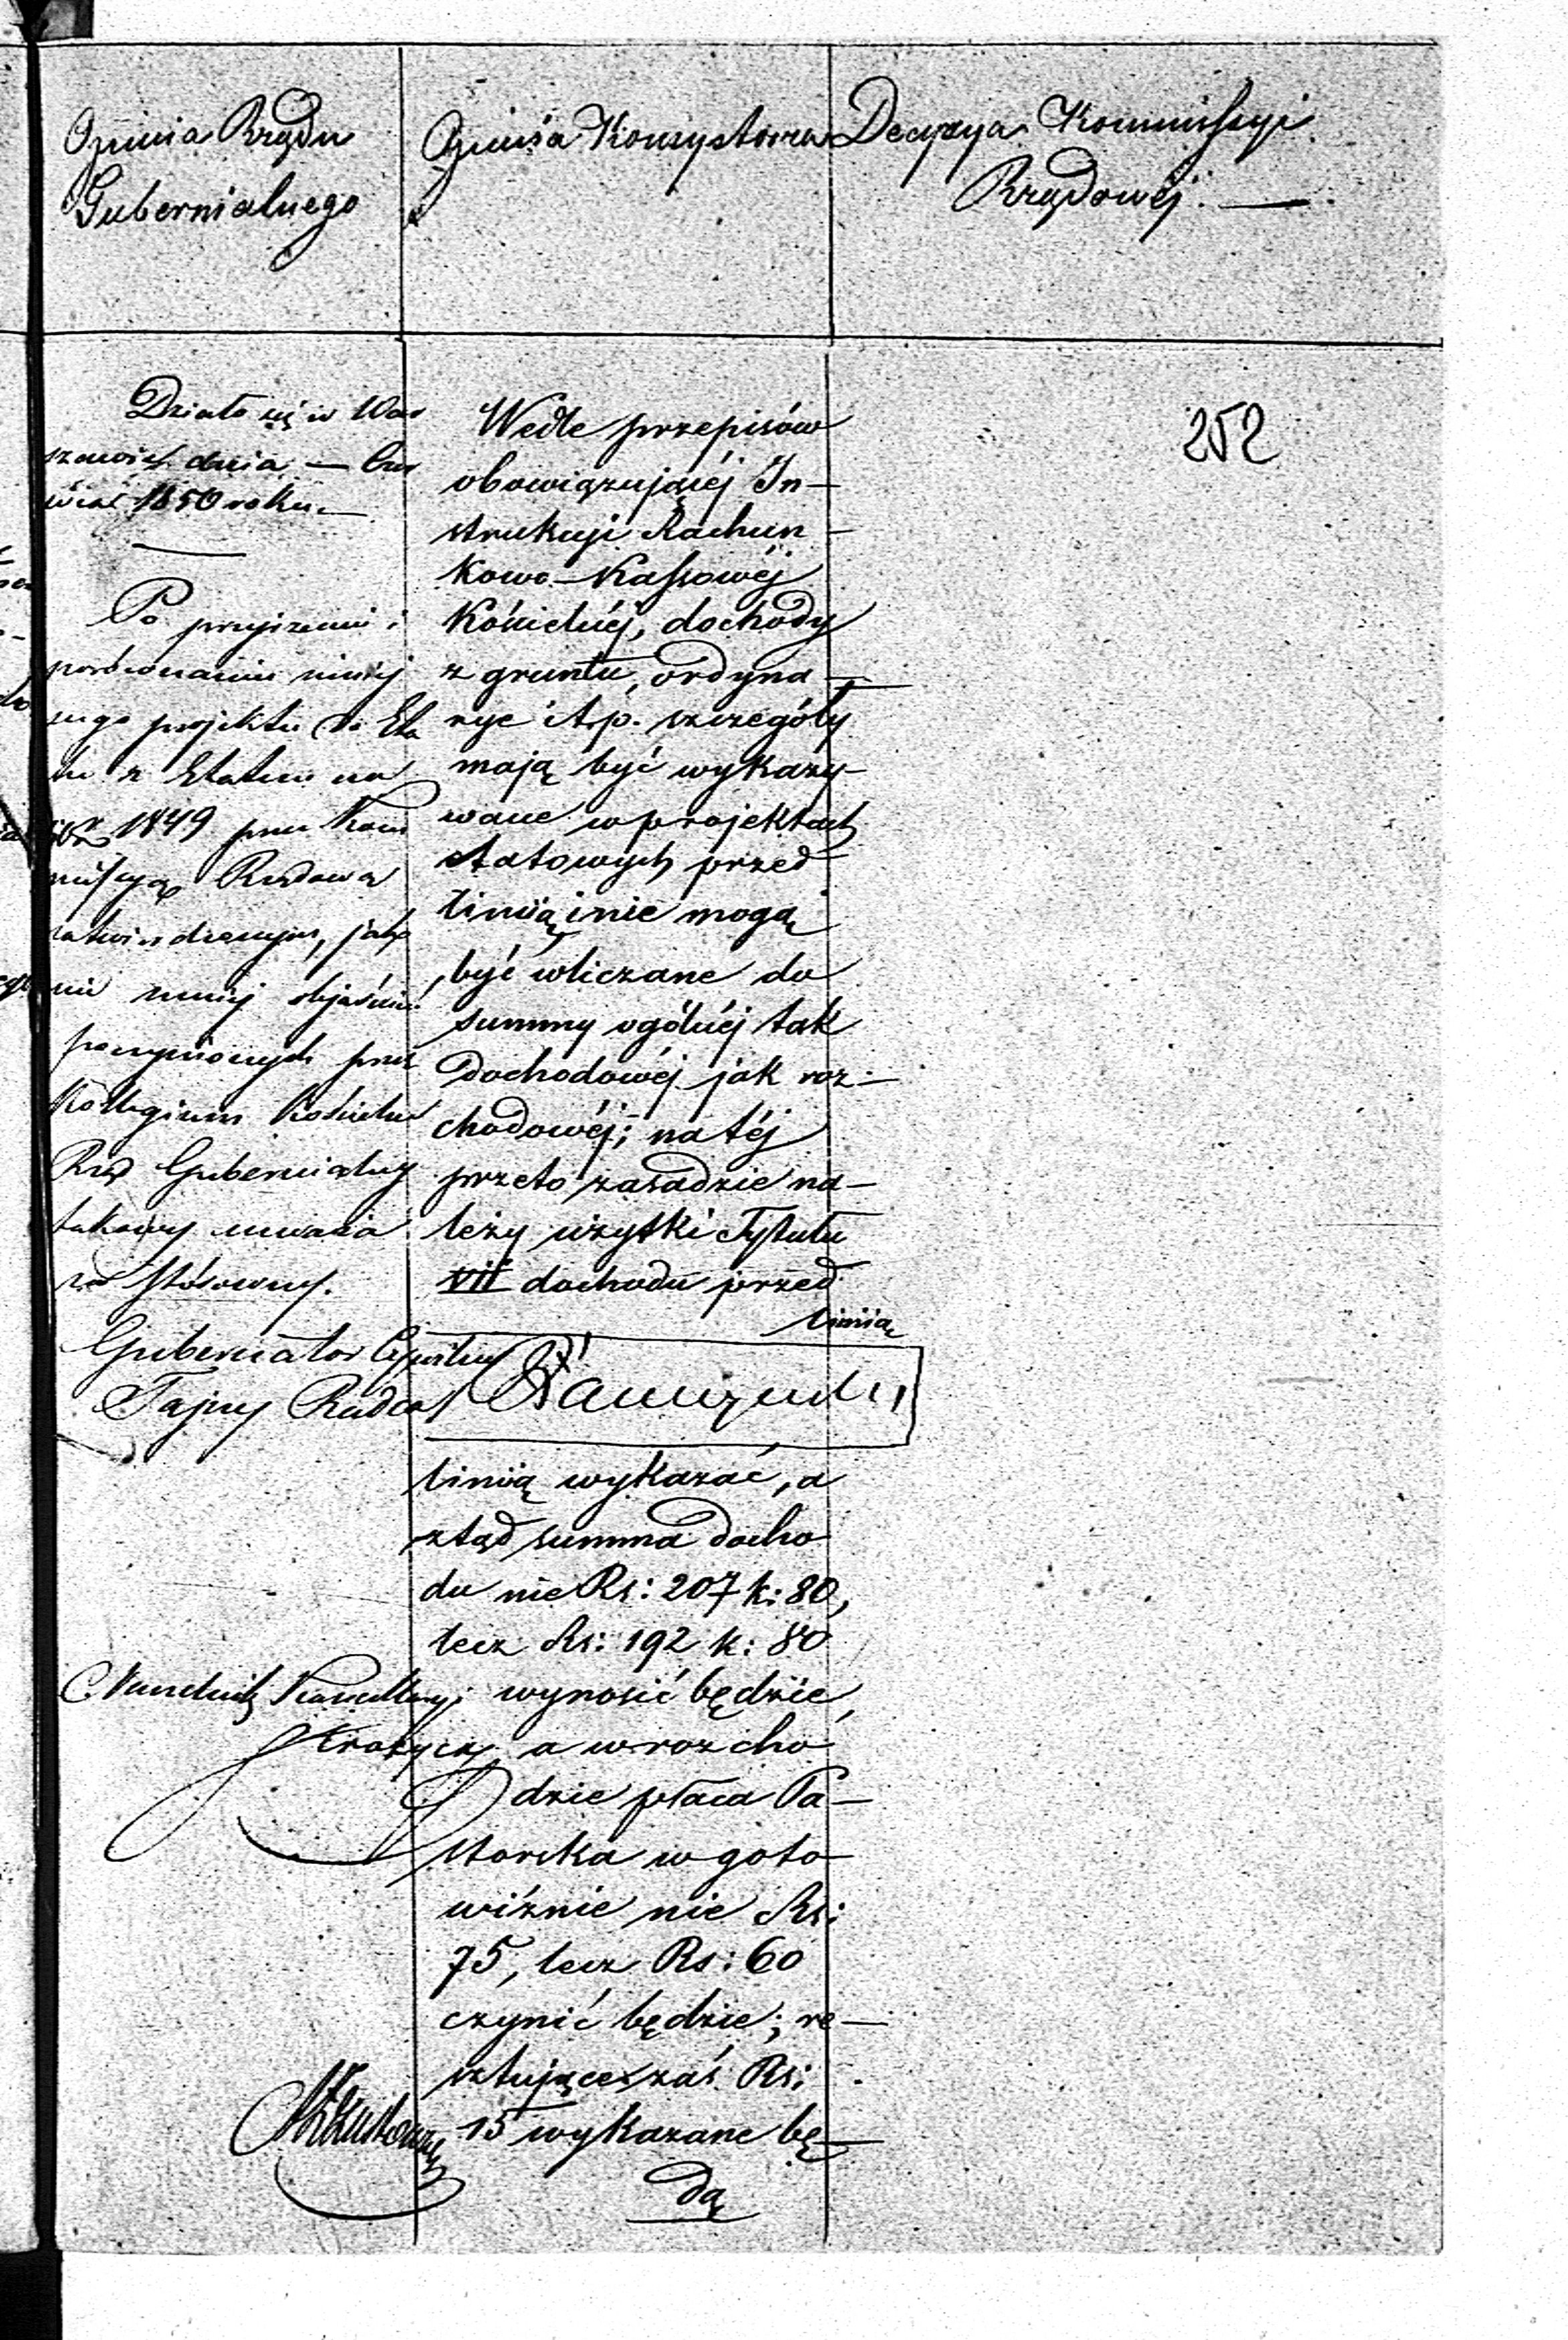 Opinia Rządu
Gubernialnego
Opinia Konsystorza
Decyzya Kommissyi
Rządowéj. —
252
Działo się w War
szawie dnia — Czer
wiec 1850 roku. —
Po przejrzeniu i
porównaniu niniej
szego projektu do Eta
tu z Etatem na
rok 1849 przez Kom
missyą Rządową
zatwierdzonym, jako
nie mniej objaśnień
poczynionych przez
Kollegium Kościelne
Rząd Gubernialny
takowy uważa
za stósowny.
Gubernator Cywilny
Tajny Radca
Naczelnik Kancellaryi
Wedle przepisów
obowiązującéj In—
strukcyi Rachun—
kowo-Kassowéj
Kościelnéj, dochody
z gruntu, ordyna—
rye i t.p. szczegóły
mają być wykazy—
wane w projektach
etatowych przed
liniią i nie mogą
być wliczane do
summy ogólnéj tak
dochodowéj jak roz—
chodowéj; na téj
przeto zasadzie na—
leży użytki Tytułu
VII dochodu przed
liniią
liniią wykazać, a
ztąd summa docho
du nie Rs: 207 k: 80,
lecz Rs: 192 k: 80
wynosić będzie,
a w rozcho
dzie płaca Pa—
storska w goto
wiźnie nie Rs:
75, lecz Rs: 60
czynić będzie; re—
sztujące zaś Rs:
15 wykazane bę—
dą